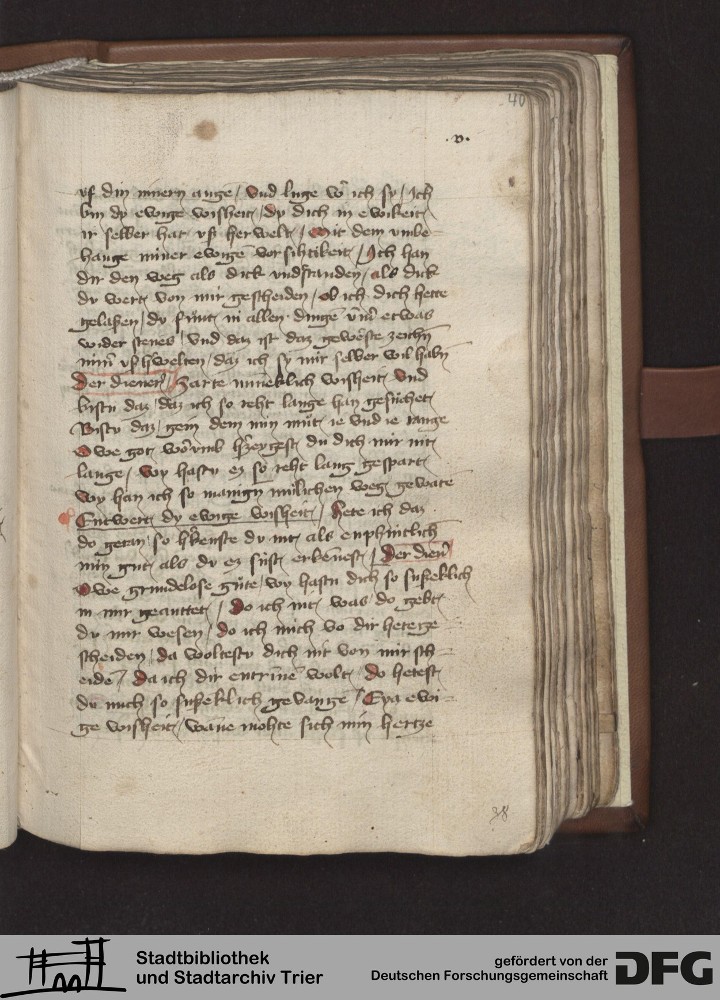 40
.v.
uf din innern auge / Und luge wˀ ich sy / Ich
bin dy ewige wisheit / dy dich in ewikeit
ir selber hat uß her welt / Mit dem umbe
hange miner ewigē vorsihtikeit / Ich han
dir den weg als dick understanden / als dick
du wert von mir gescheiden / ob ich dich hette
gelaßen / du fünt in allen dingē etwas
wider stenes / Und daz ist daz gewēste zeichn
daz ich sy mir selber wil habn
Der diener / Zarte mineklich wisheit / Und
bistu daz / daz ich so reht lange han gesuchet
Bistu daz / gem dem min mut ie und ie range
Owe got / wor umb erzeygest du dich mir nit
lange / wy hastu ez so reht lang gespart
wy han ich so manign mülichen weg gewate
Entwert dy ewige wisheit / Hete ich daz
do getan / so bekenste du nit als enphintlich
min gut als du ez süst erkenest / Der dien
Owe grundelose güte / wy hastu dich so süßeklich
in mir geauttet / Do ich nit was do gebt
du mir wesen / do ich mich vō dir hete ge
scheiden / da woltestu dich nit von mir sch
eidē / Da ich dir entrinē wolt / do hetest
du mich so süßeklich gevangē / Eya ewi
ge wisheit / wāne mohte sich min hertze
38
Stadtbibliothek
und Stadtarchiv Trier
gefördert von der
Deutschen Forschungsgemeinschaft
DFG